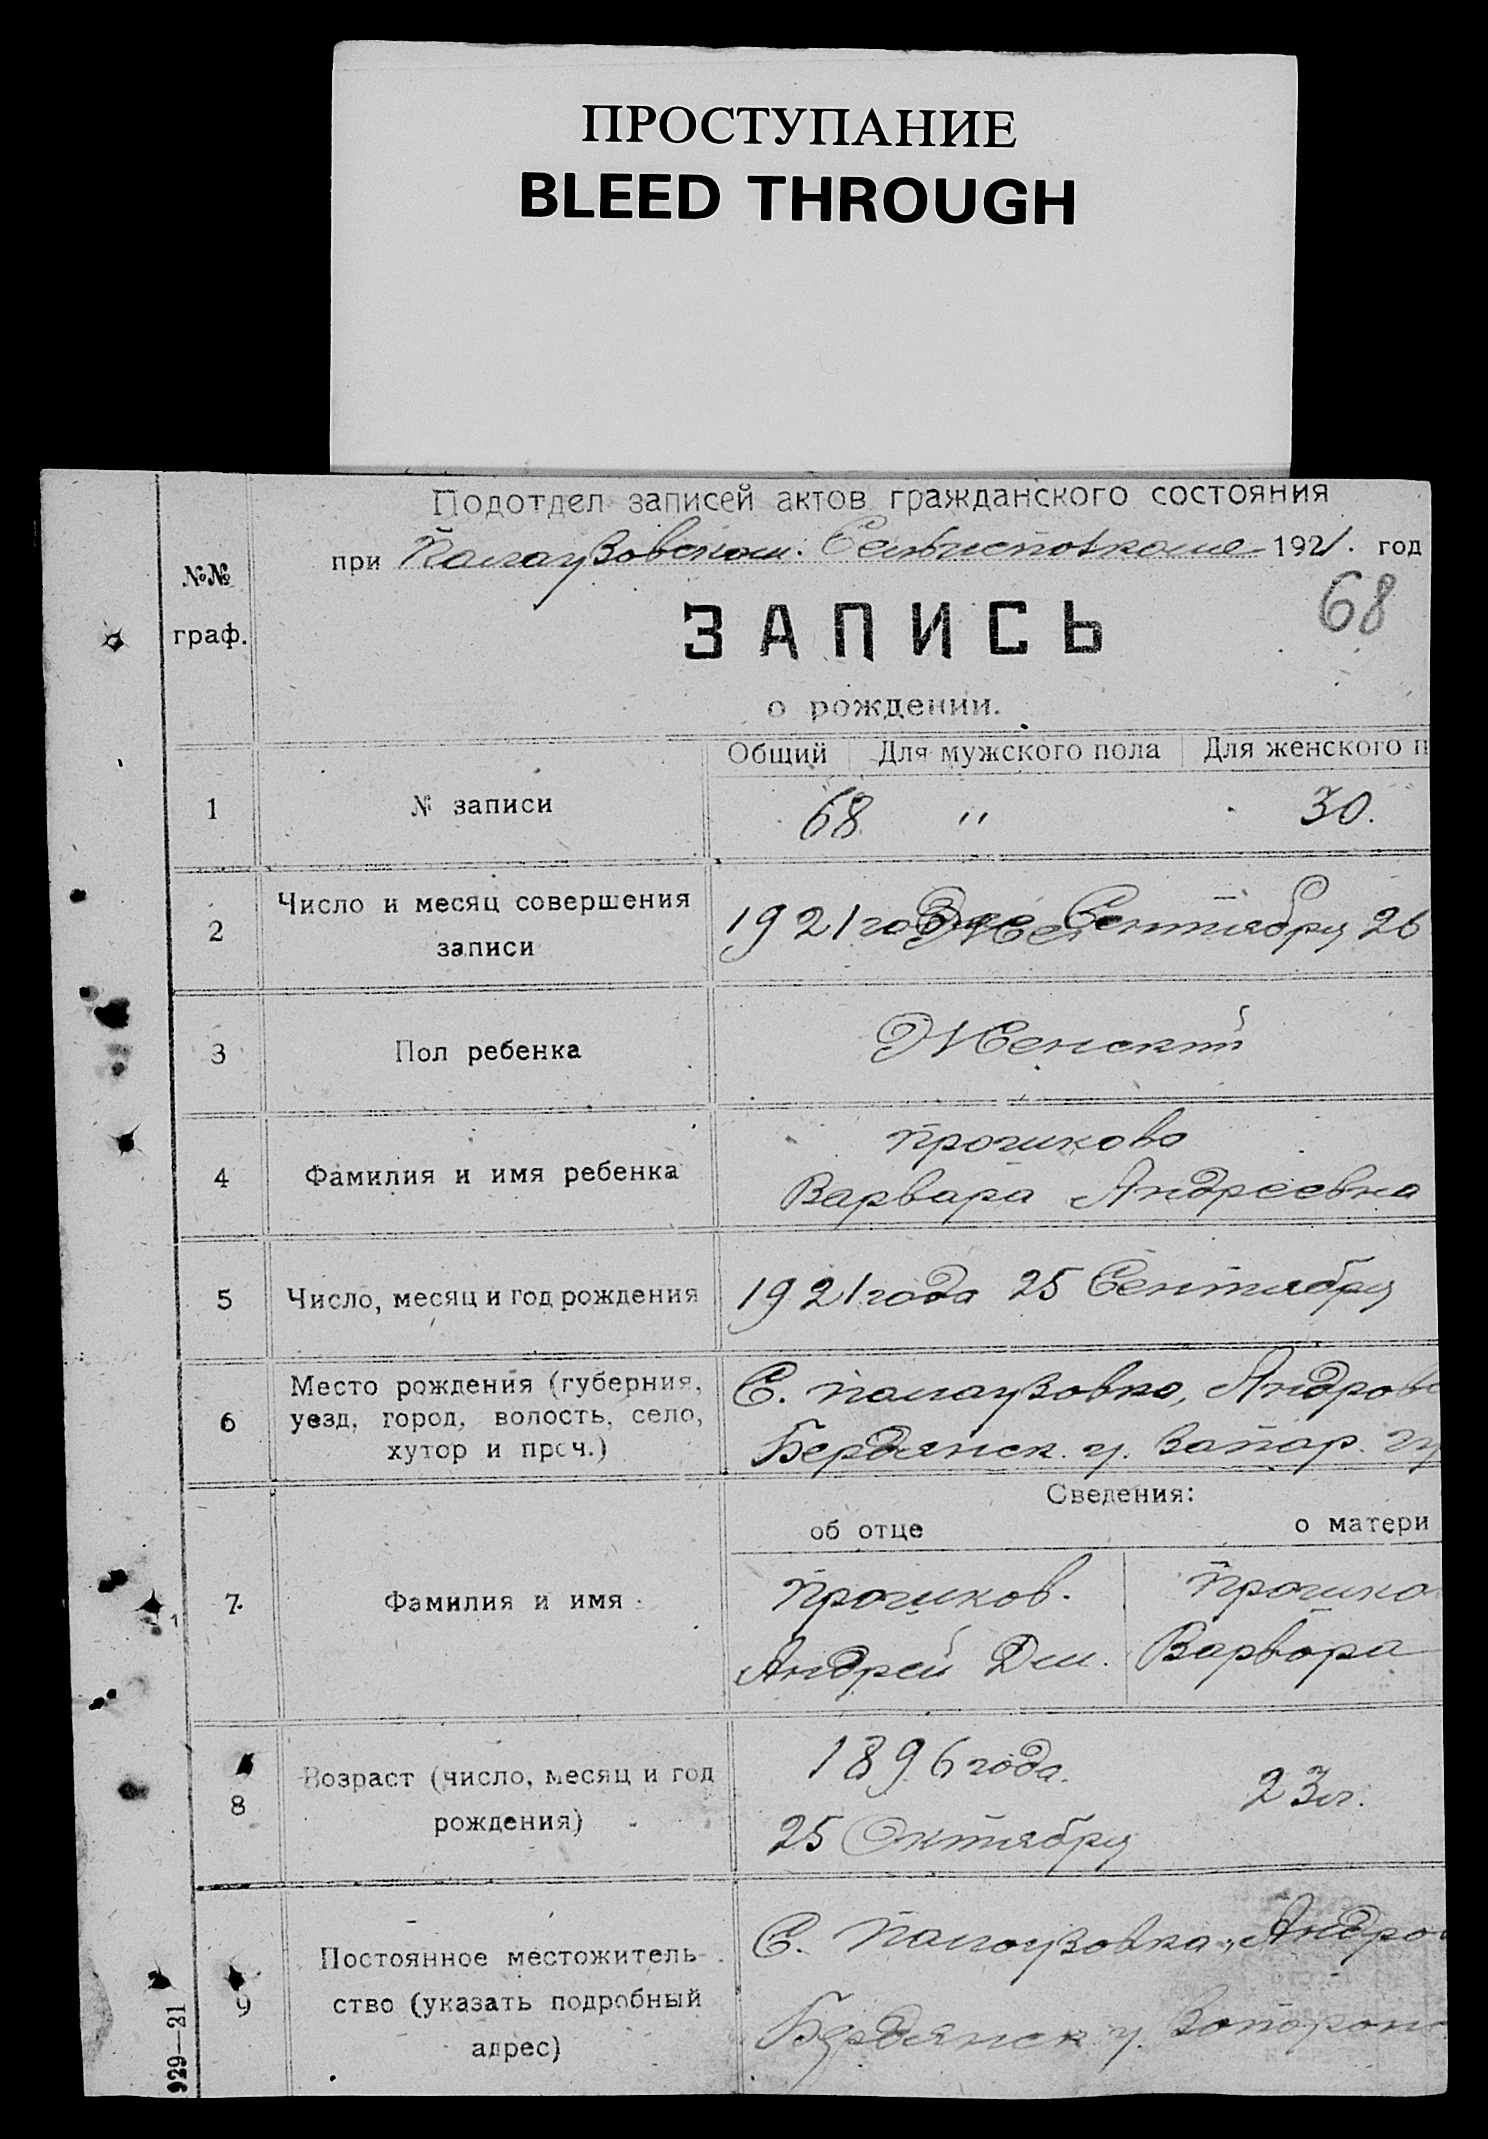 ПРОСТУПАНИЕ
BLEED THROUGH
Подотдел записей актов гражданского состояния
при Палаузовском. Сельисполкоме 1921. год
№№
граф.
68
ЗАПИСЬ
о рождении.
Общий Для мужского пола Для женского п
1 № записи 68 " 30.
2 Число и месяц совершения
записи
1921 года Сентября 26
3 Пол ребенка Женский
4 Фамилия и имя ребенка
Варвара Андреевна
5 Число, месяц и год рождения 1921 года 25 Сентября
6 Место рождения (губерния,
уезд, город, волость, село,
хутор и проч.)
С. Палаузовка, Андров
Бердянск. у. Запор. гу
Сведения:
об отце о матери
7 Фамилия и имя
Андрей Дм. Варвара
8 Возраст (число, месяц и год
рождения)
1896 года.
25 Октября
23 г.
9 Постоянное местожитель-
ство (указать подробный
адрес)
С. Палаузовка, Андров
Бердянск у. Запорож
929—21